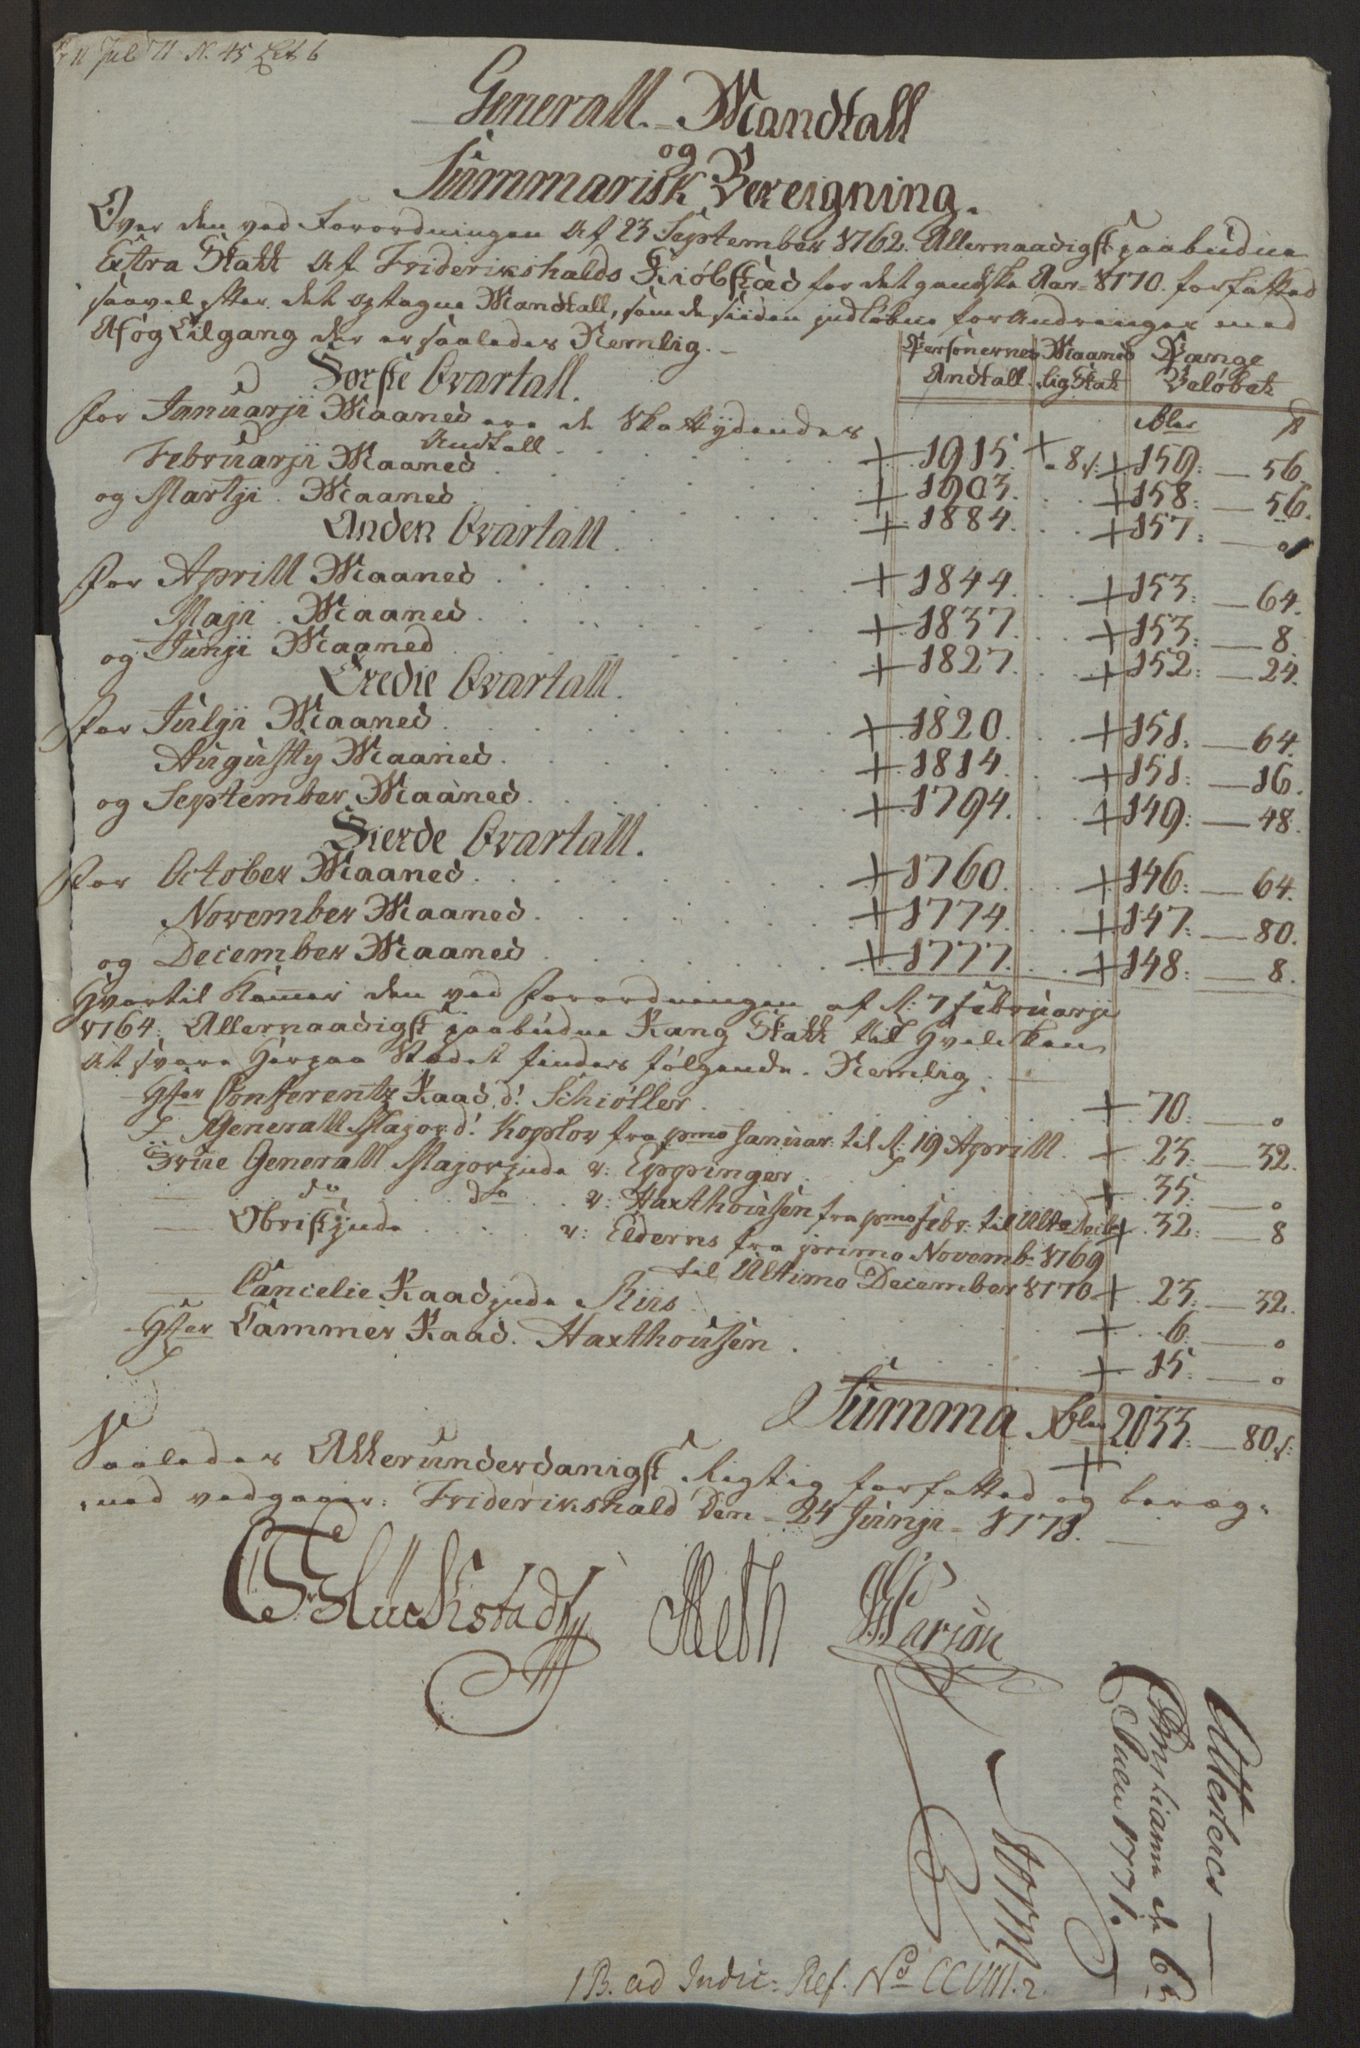 11 Jul 71 N. 45 Lit b
Generall-Mandtall
og
Summarisk Bereigning.
Over den ved Forordningen af 23 September 1762. Allernaadigst paabudne
Extra Skatt af Frideriks halds Kiøbstæd for det gandske Aar 1770. forfatted
saavel efter det optagne Mandtall, som de siiden indløbne forandringer med
Af og Tilgang der er saaledes Nemlig.
Personernes Maaned Pænge
Andtall. lig Skat Beløbet
Første Qvartall.
Rdlr ß
for Januarji Maaned ere de Skattydendes
Andtall 1915. 8ß: 159: 56.
Februarji Maaned 1903. 158: 56.
og Martji Maaned 1884. 157: 0
Anden Qvartall
for Aprill Maaned 1844. 153: 64.
Maji Maaned 1837. 153: 8.
og Junji Maaned 1827. 152: 24.
Tredie Qvartall.
for Julji Maaned 1820. 151: 64.
Augusty Maaned 1814. 151: 16.
og September Maaned 1794. 149: 48.
Fierde Qvartall.
for October Maaned 1760. 146: 64.
November Maaned 1774. 147: 80.
og December Maaned 1777. 148: 8.
Hvortil kommer den ved Forordningen af d: 7 Februarji
1764. Allernaadigst paabudne Rang Skatt til Hvilcken
at svare Herpaa Stædet findes følgende. Nemlig:
Hr Conferentz Raad d! Schiøller 70: 0
Generall Major d! Koplov fra pmo Januar: til d: 19 Aprill 23: 32.
Frue Generall Majorinde v: Eppinger 35: 0
do do v: Haxthousen fra pmo Febr: til Ult: Decbr 32: 8
Obristinde v: Elderns fra primo Novemb: 1769
til Ultimo December 1770 23: 32.
Cancelie Raadinde Ries 6: 0
Hr Cammer Raad Haxthousen 15: 0
Summa Rdlr 2033: 80ß:
Saaledes Allerunderdanigst Rigtig forfatted og bereg-
ned vedgaaer: Friderikshald Den 24 Junji 1771.
Glückstadt Meth Larson
Attesteres
Christiania de 6te
Julij 1771.
Storm
1 B. ad Indic: Ref. No CCVIII. 2.